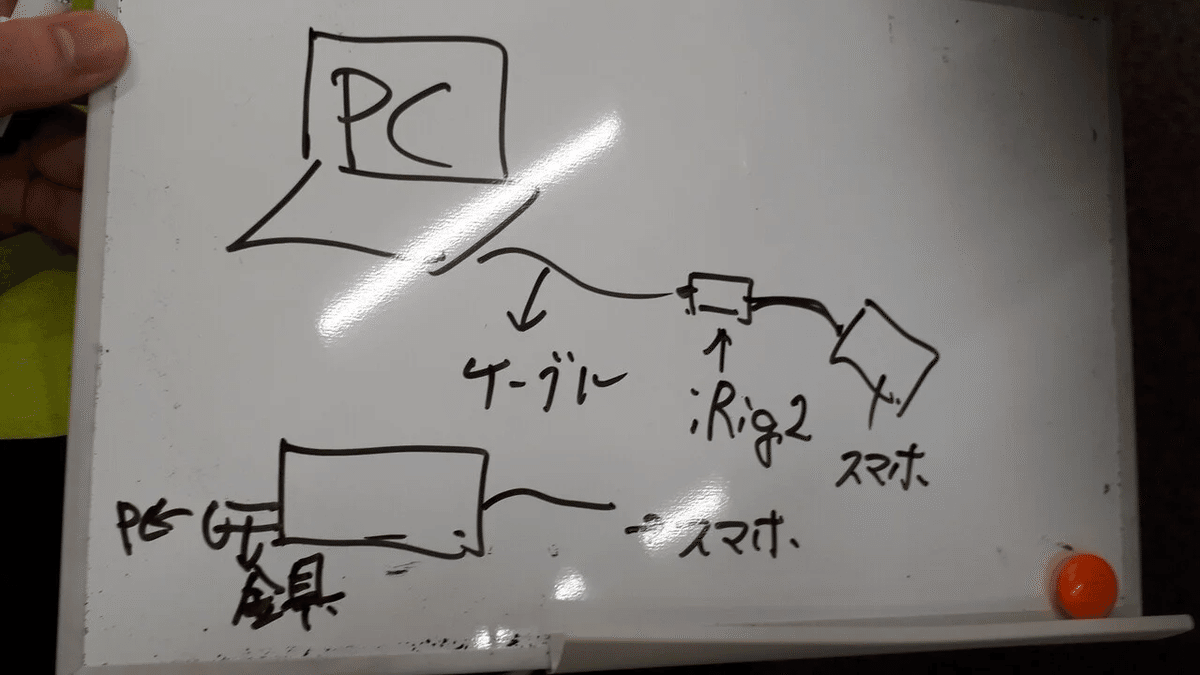 PC
ケーブル
iRig2
スマホ
PC←
→スマホ
金具